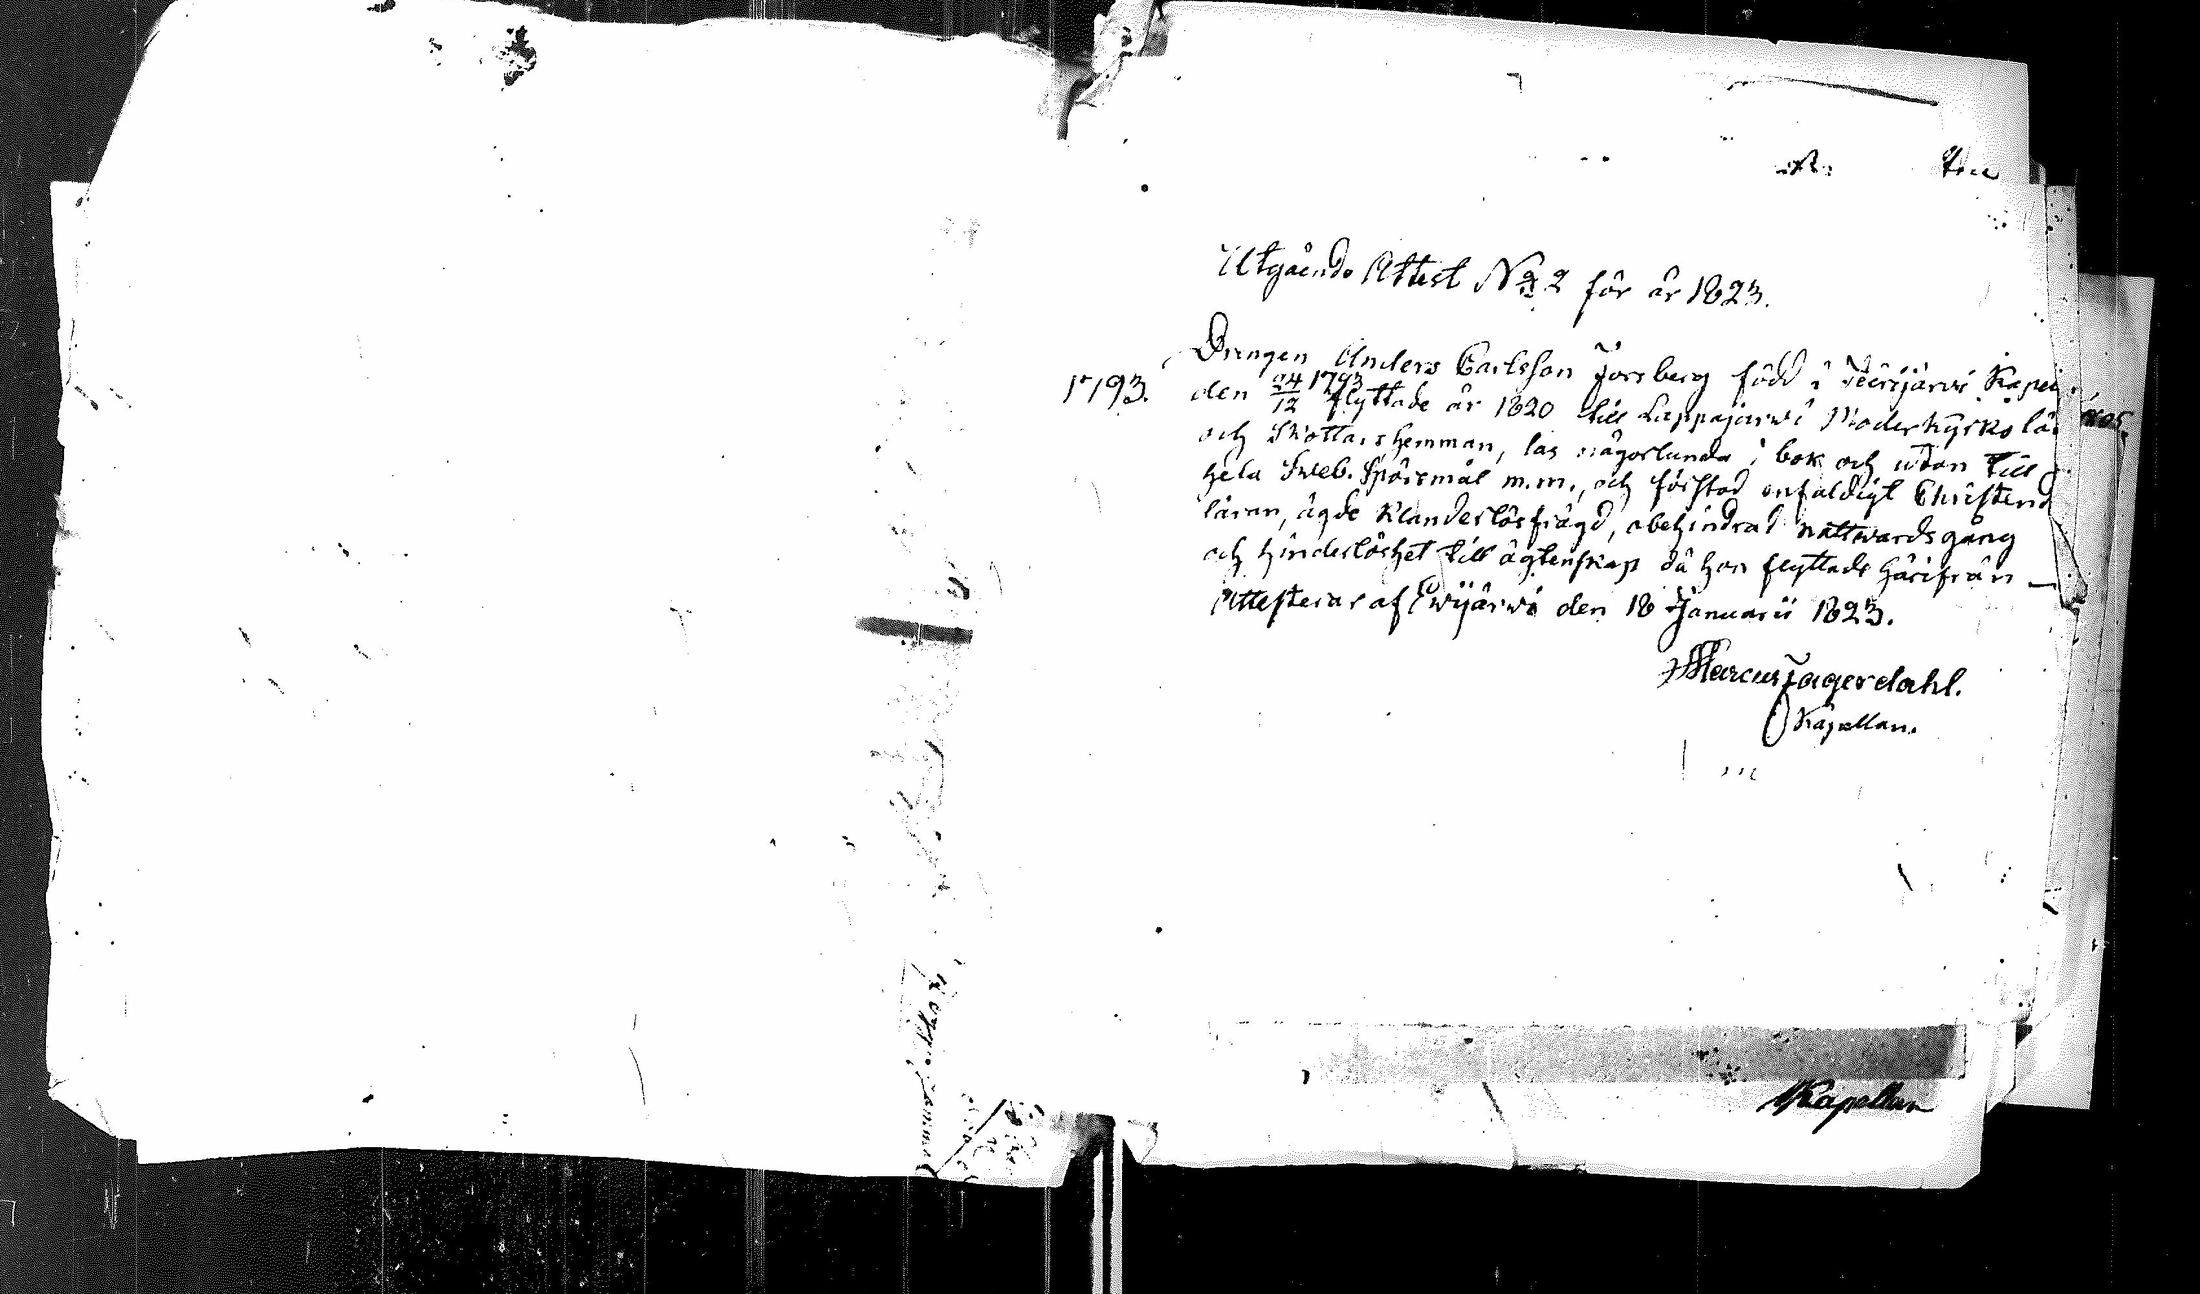 Utgående Attest No 2 för år 1823.
Drengen Anders Carlsson Forsberg född i Terijärwi Kapel
1793. den 24/12 1793 flyttade år 1820 till Lappajärwi Moderkyrko
och hemman, las någorlunda i bok och utan till
hela Sweb. Spörsmål m.m., och förstod enfaldigt Christend
läran, ägde klanderlös frägd, obehindrad nattwardsgång
och hinderlöshet till ägtenskap då hon flyttade härifrån
Attesterar af Ewijärwi den 18 Januarii 1823.
Marcus Fagerdahl.
Kapellan.
Kapellan